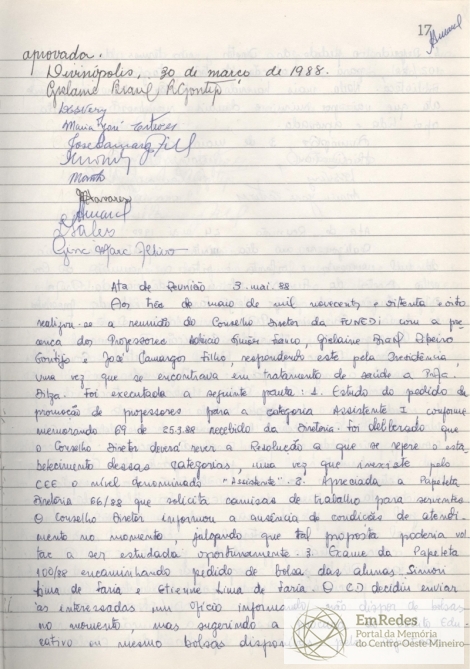 17
aprovada.
Divinópolis, 30 de março de 1988.
Gislaine Brasil R Gontijo
Maria José
José Camargos Filho
Tavares
Sales
Ata de Reunião 3. mai. 88
Aos três de maio de mil novecentos e oitenta e oito
realizou-se a reunião do Conselho Diretor da FUNEDI com a pre
sença dos Professores Franco, Gislaine Brasil Ribeiro
Gontijo e José Camargos Filho, respondendo este pela Presidência,
uma vez que se encontrava em tratamento de saúde a Profa.
Foi executada a seguinte pauta: 1. Estudo do pedido de
promoção de professores para a categoria Assistente I, conforme
memorando 89 de 25.3.88 recebido da Diretoria. foi deliberado que
o Conselho Diretor deverá rever a Resolução a que se refere o esta-
belecimento dessas categorias, uma vez que inexiste pelo
CEE o nível denominado "Assistente". 2. Apreciada a Papeleta
Diretoria 66/88 que solicita camisas de trabalho para serventes
O Conselho Diretor informou a ausência de condições de atendi
mento no momento, julgando que tal proposta poderia vol
tar a ser estudada oportunamente. 3. Exame da Papeleta
100/88 encaminhando pedido de bolsa das alunas Simoni
Lima de Faria e Etienne Lima de Faria. O CD decidiu enviar
às interessadas um ofício informando não dispor de bolsas
no momento, mas sugerindo a Edu-
cativo ou mesmo bolsas
EmRedes
Portal da Memória
do Centro-Oeste Mineiro